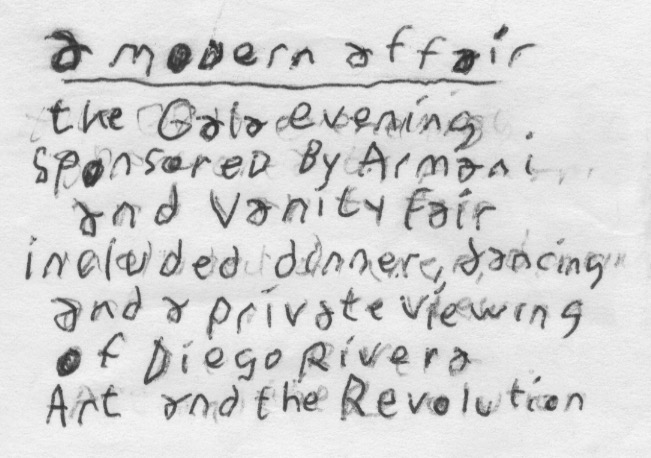 a modern affair
the Gala evening
sponsored By Armani
and Vanity Fair
included dinner, dancing
and a private viewing
of Diego Rivera
Art and the Revolution